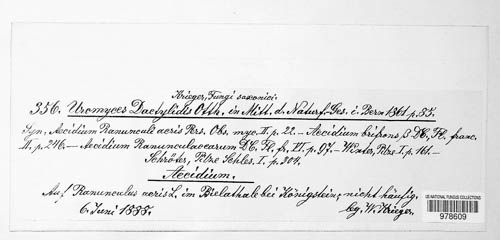 Krieger, Fungi saxonici.
356. Uromyces Dactylidis Otth. in Mitt. d. Naturf. Ges. i. Bern 1861 p. 85.
Syn. Aecidium Ranunculi acris Pers. Obs. myc. II. p. 22. — Aecidium bifrons, β DC. Fl. franc.
II, p. 246. — Aecidium Ranunculacearum DC. Fl. fr. VI. p. 97. — Winter, Pilze I. p. 161 —
Schröter, Pilze Schles. I. p. 304.
Aecidium.
Auf Ranunculus acris L. im Bielathale bei Königstein, nicht häufig.
6. Juni 1885. leg. W. Krieger.
US NATIONAL FUNGUS COLLECTIONS
978609